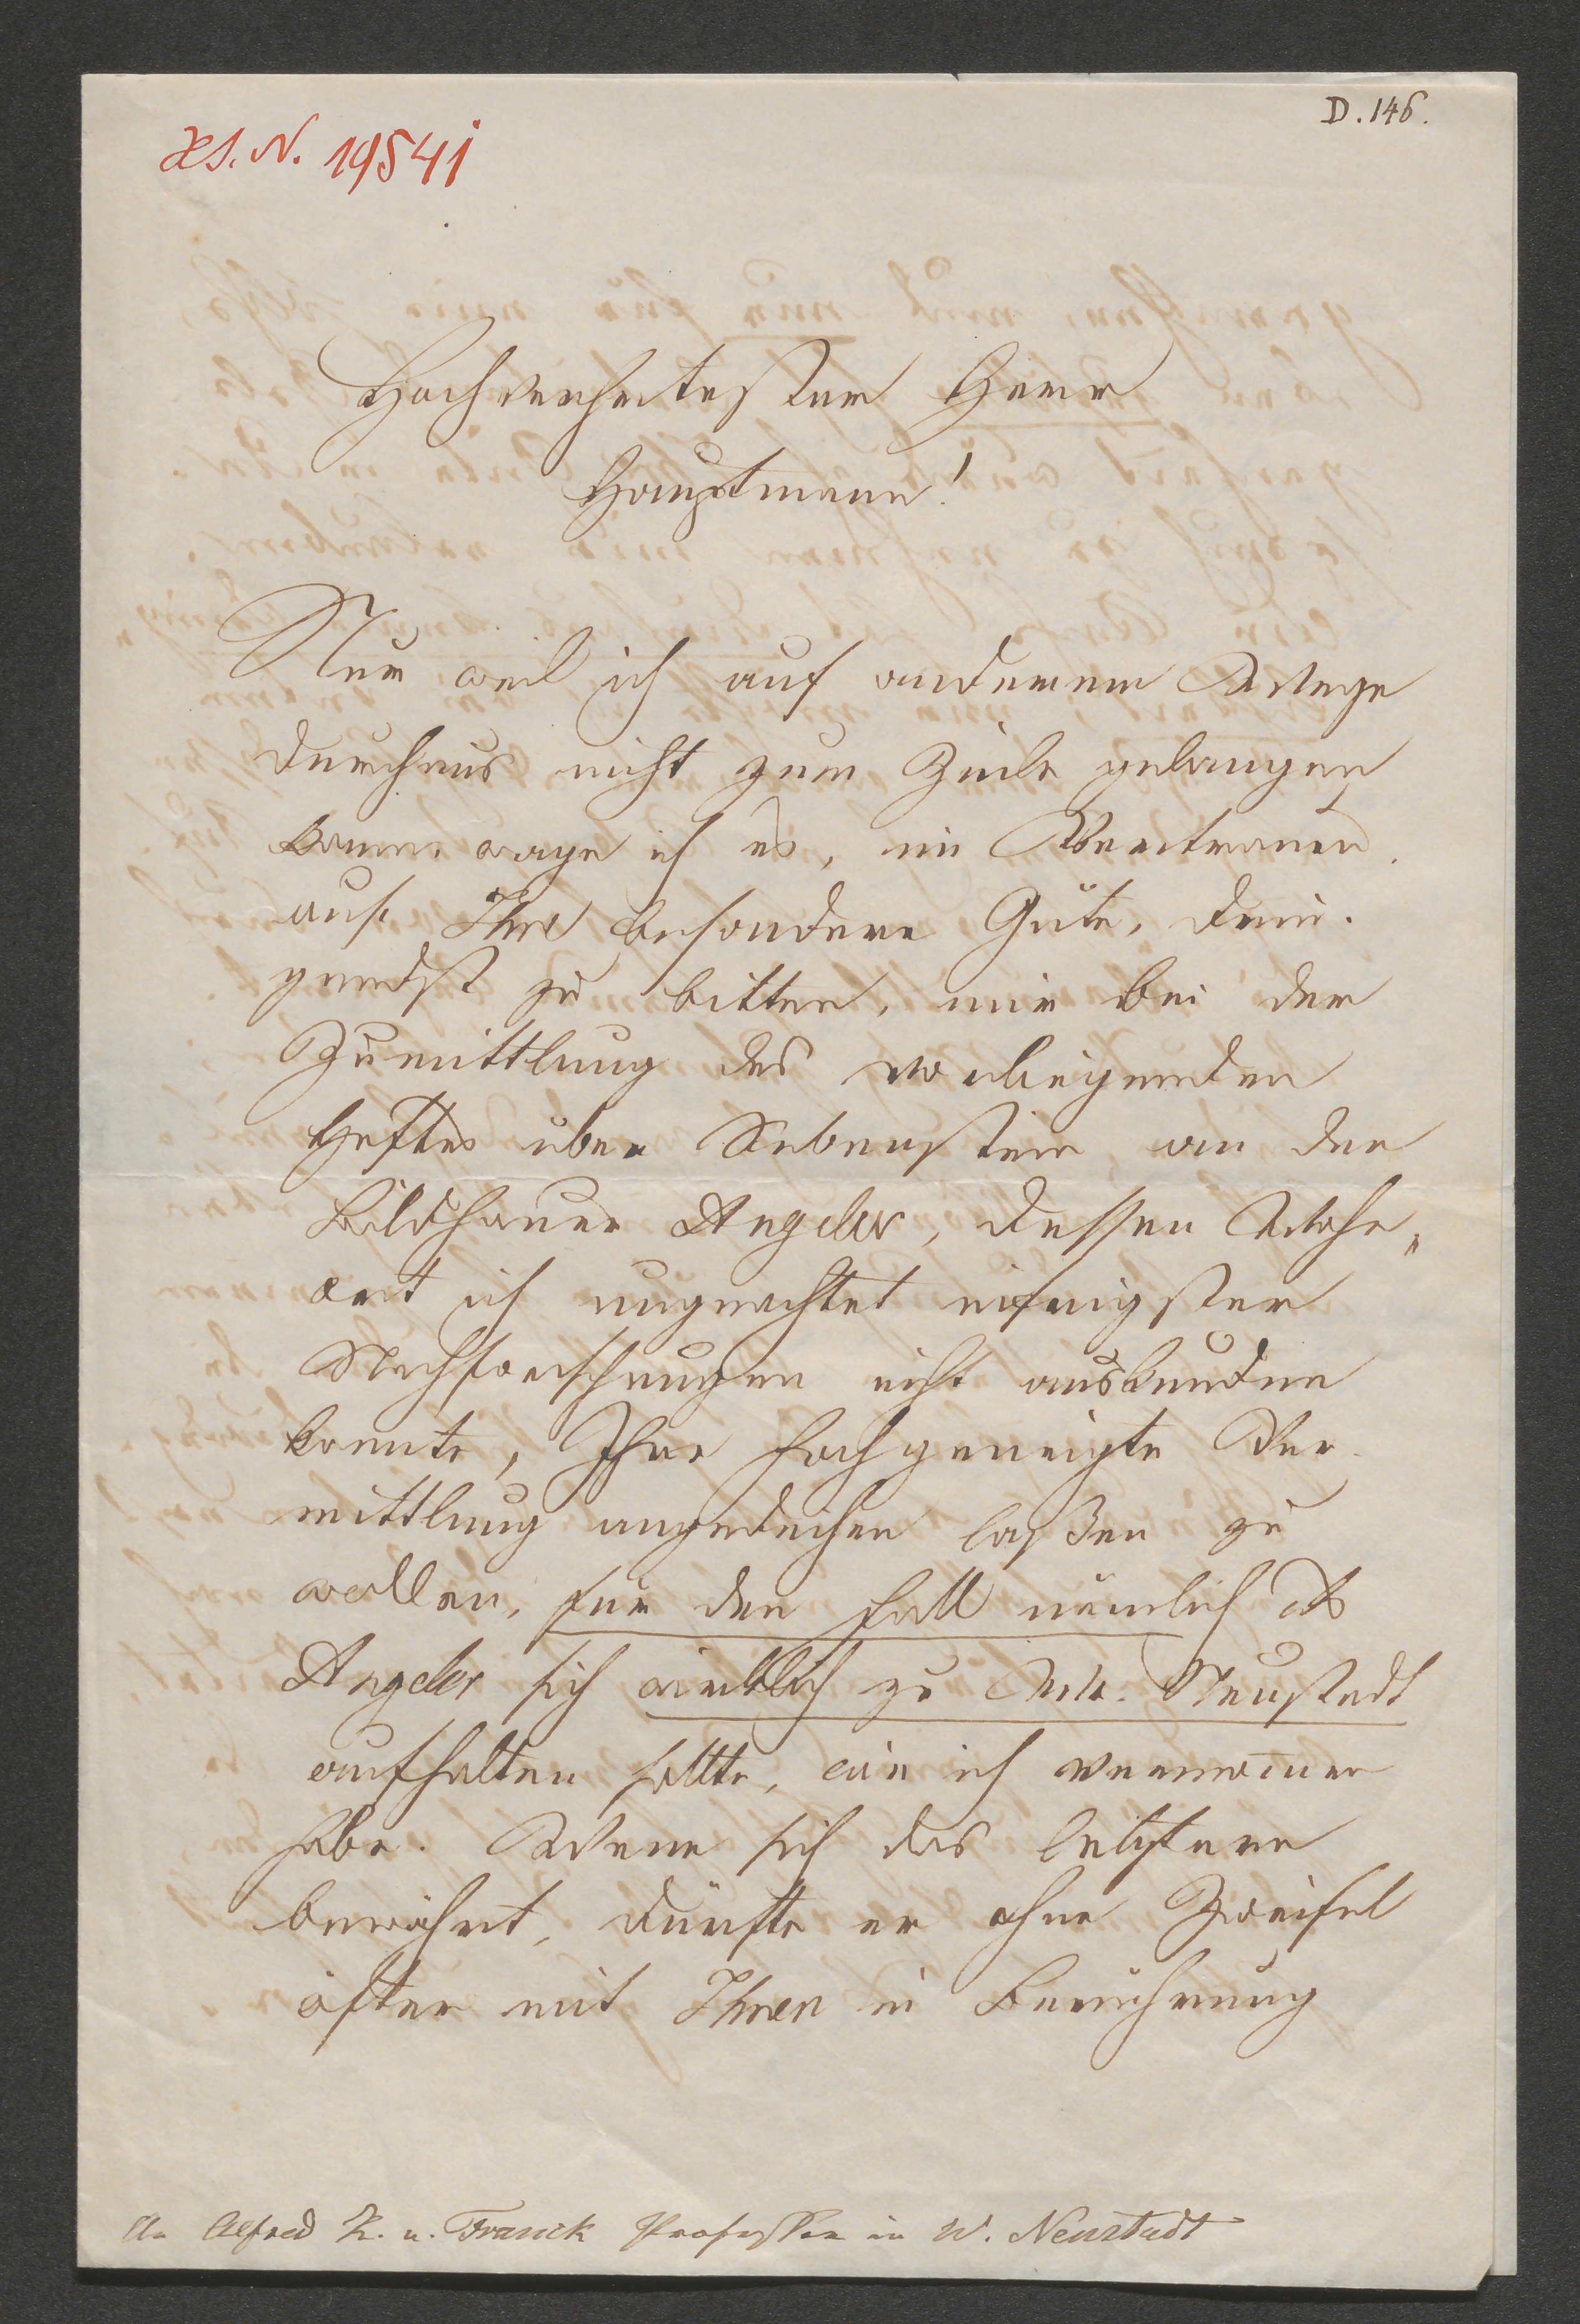 D. 146.
H.S. N. 19541
Hochverehrtester Herr
Hauptmann!
Nur weil ich auf anderem Wege
durchaus nicht zum Ziele gelangen
kann, wage ich es, im Vertrauen
auf Ihre besondere Güte, drin-
gendst zu bitten, mir bei der
Zumittlung des vorliegenden
Heftes über Sebenstein an den
Bildhauer Angeler, dessen Wohn„
ort ich ungeachtet eifrigster
Nachforschungen nicht auskunden
konnte, Ihre hochgeneigte Ver-
mittlung angedeihen laßen zu
wollen, für den Fall nämlich als
Angeler sich wirklich zu Neustadt
aufhalten sollte, wie ich vernommen
habe. Wenn sich das letztere
bewährt, dürfte er ohne Zweifel
öfter mit Ihnen in Berührung
An Alfred R. v. Franck Professor in W. Neustadt